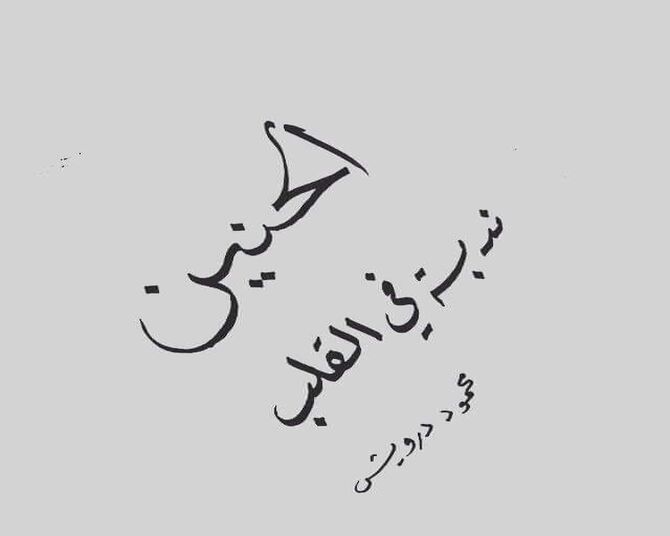 الحنين
ندبة في القلب
محمود درويش